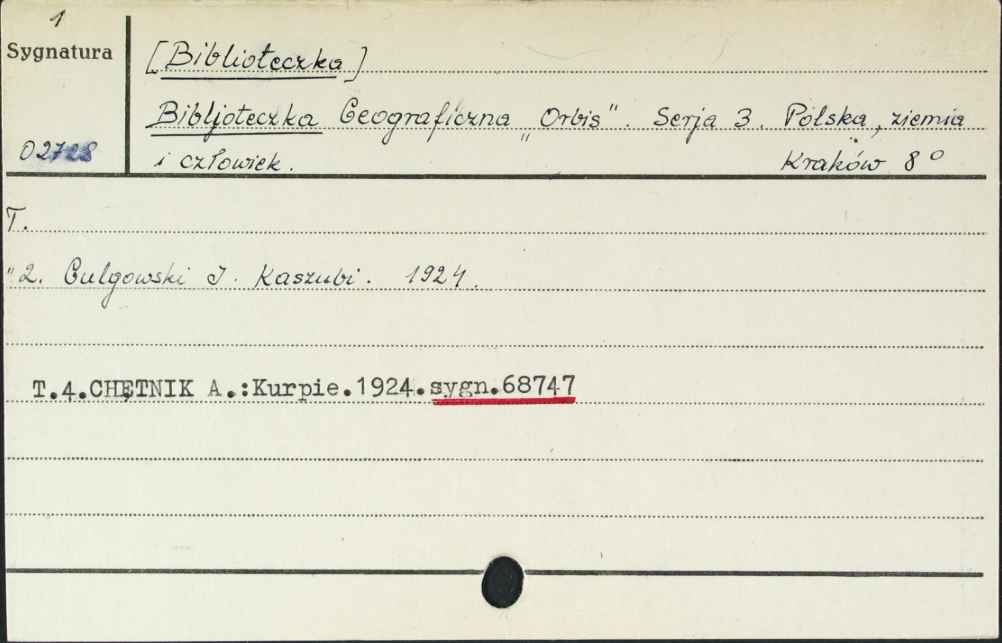 1
Sygnatura
[Biblioteczka]
Bibljoteczka Geograficzna „Orbis". Serja 3. Polska, ziemia
02728
i człowiek. Kraków 8°
T.
"2. Gulgowski I. Kaszubi. 1924.
T.4.CHĘTNIK A.:Kurpie.1924.sygn.68747